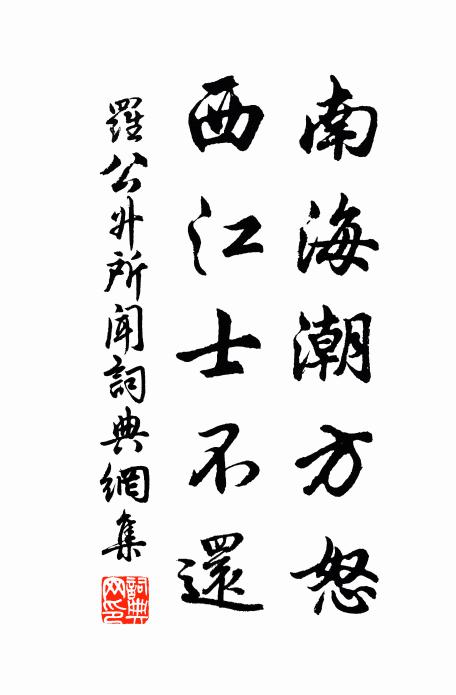 南海潮方怒
西江士不還
羅公升所聞詞典網集
詞典網印